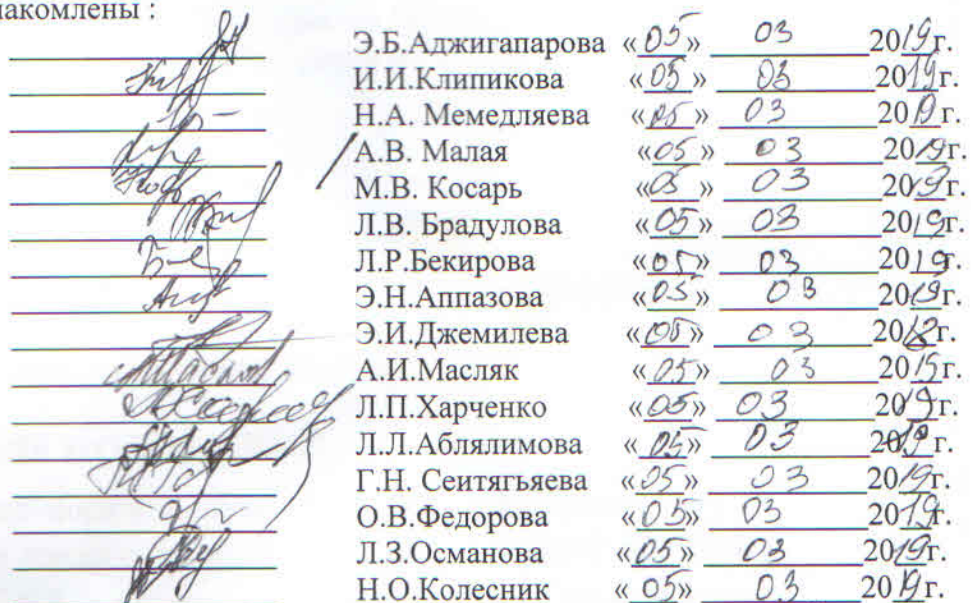 накомлены :
Э.Б.Аджигапарова «05» 03 2019г.
И.И.Клипикова «05» 03 2019г.
Н.А. Мемедляева «05» 03 2019г.
А.В. Малая «05» 03 2019г.
М.В. Косарь «05» 03 2019г.
Л.В. Брадулова «05» 03 2019г.
Л.Р.Бекирова «05» 03 2019г.
Э.Н.Аппазова «05» 03 2019г.
Э.И.Джемилева «05» 03 20 г.
А.И.Масляк «05» 03 2019г.
Л.П.Харченко «05» 03 2019г.
Л.Л.Аблялимова «05» 03 2019г.
Г.Н. Сеитягьяева «05» 03 2019г.
О.В.Федорова «05» 03 2019г.
Л.З.Османова «05» 03 2019г.
Н.О.Колесник «05» 03 2019г.